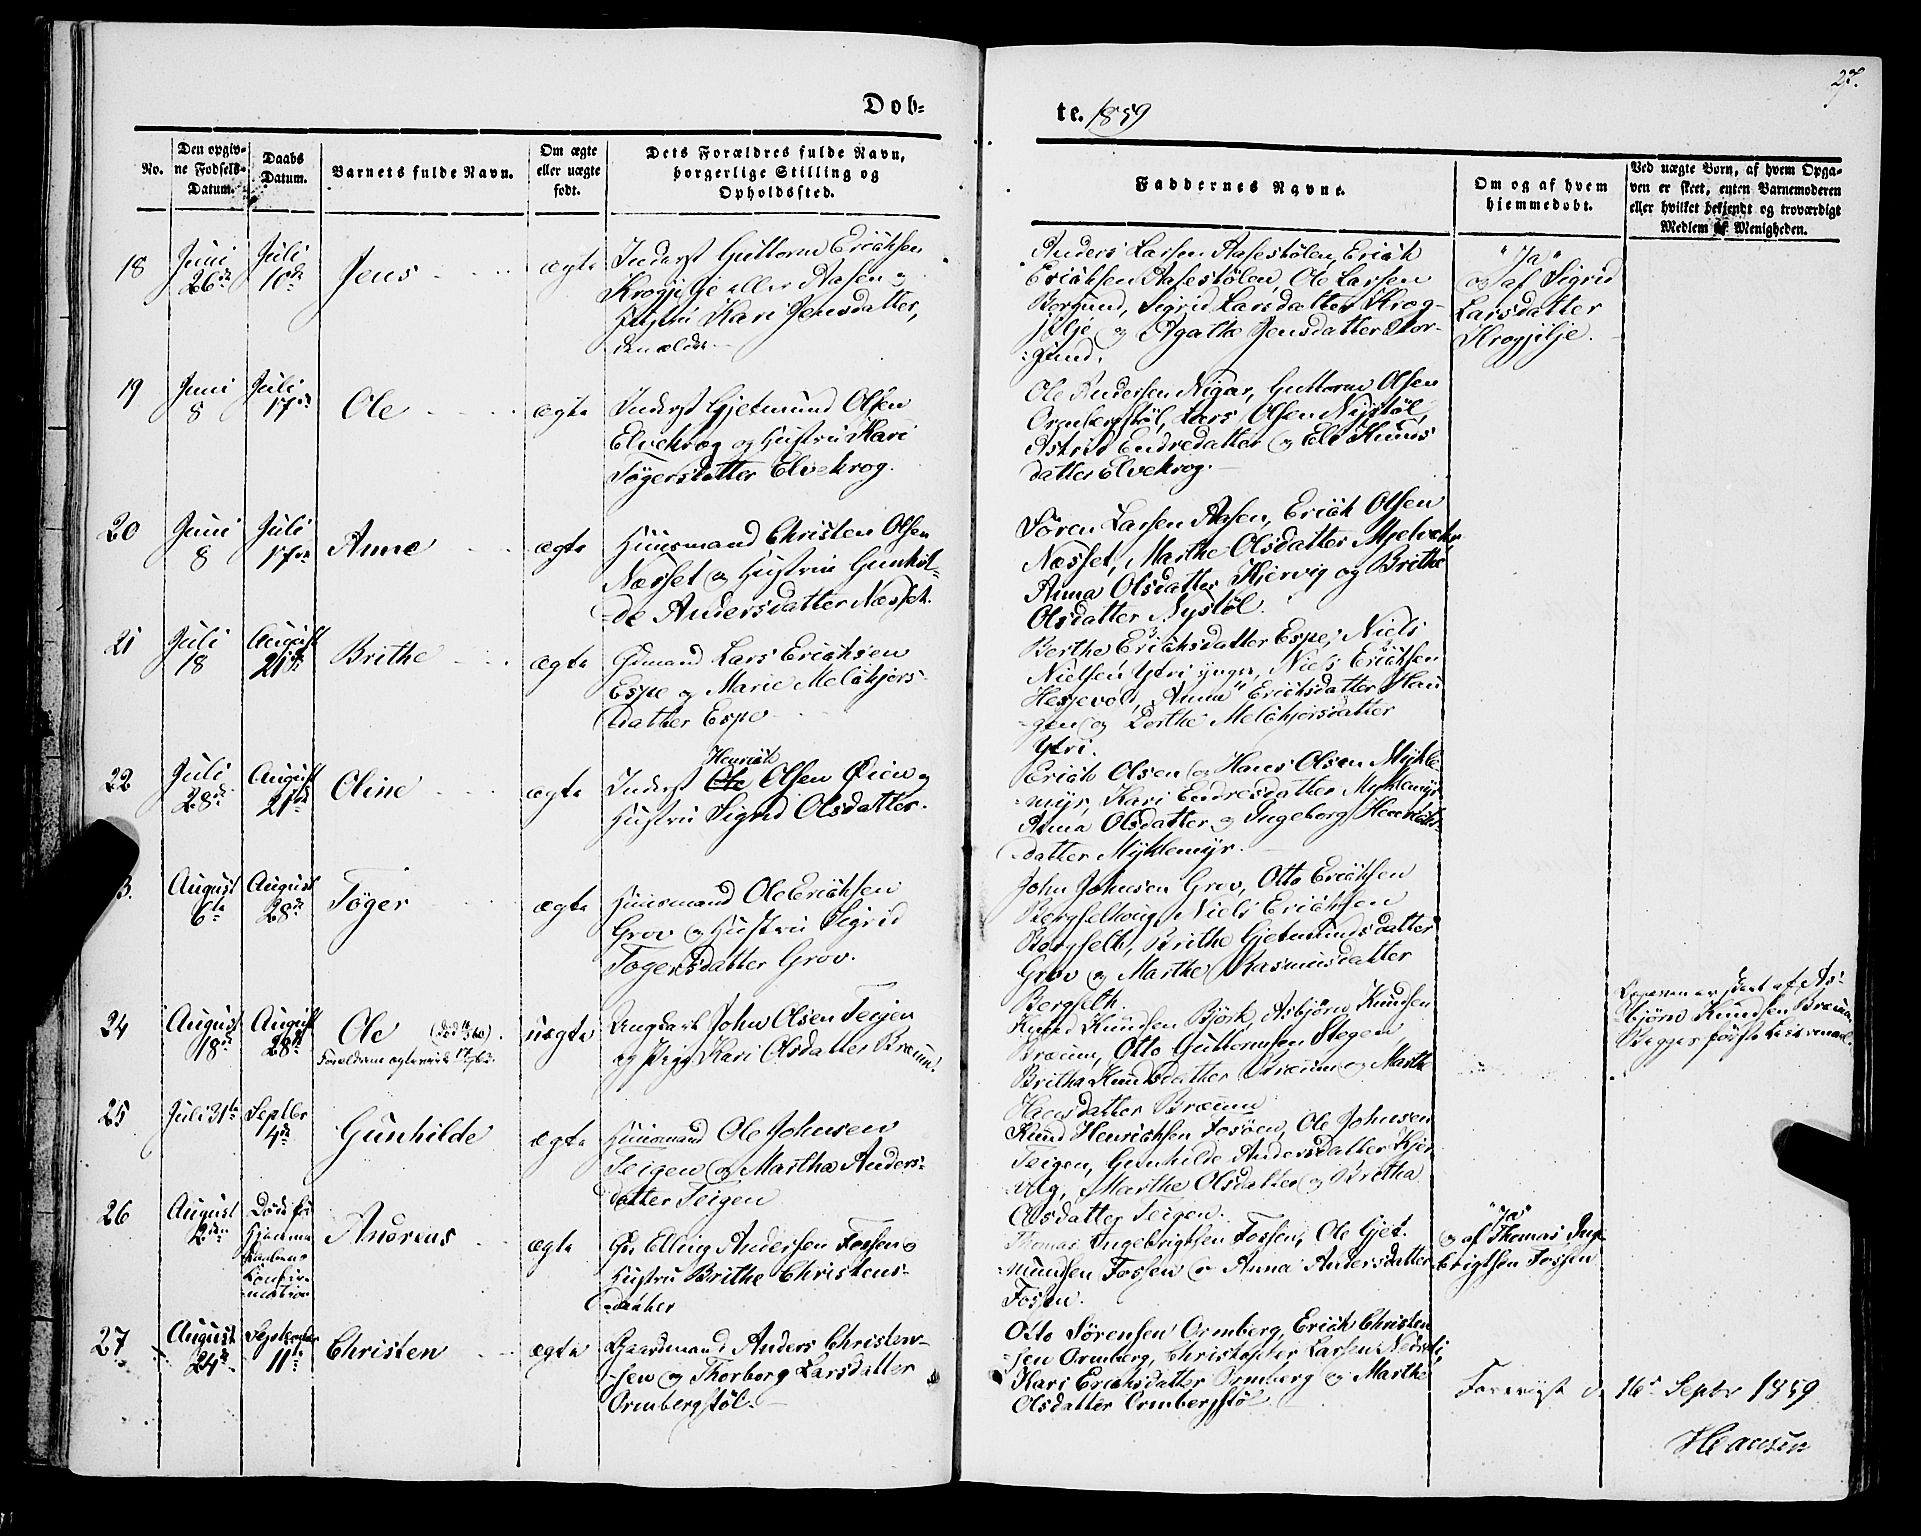 27.
Døb-
te. 1859
No.
Den opgiv-
ne Fødsels-
Datum.
Daabs
Datum.
Barnets fulde Navn.
Om ægte
eller uægte
født.
Dets Forældres fulde Navn,
borgerlige Stilling og
Opholdssted.
Faddernes Navne.
Om og af hvem
hjemmedøbt.
Ved uægte Børn, af hvem Opga-
ven er skeet, enten Barnemoderen
eller hvilket bekjendt og troværdigt
Medlem af Menigheden.
18
Juni
26de
Juli
10de
Jens
ægte
Inderst Guttorm Erichsen
Krogjilje eller Aasen og
Hustru Kari Jensdatter,
Anders Larsen Aasestølen, Erich
Erichsen Aasestølen, Ole Larsen
Borgund, Sigrid Larsdatter Krog-
jilje og Agathe Jensdatter Bor-
gund.
"Ja"
og af Sigrid
Larsdatter
Krogjilje.
19
Juni
8
Juli
17de
Ole
ægte
Inderst Gjetmund Olsen
Elvekrog og Hustru Kari
Tøgersdatter Elvekrog.
Ole Andersen Nigar, Guttorm Olsen
Ormbergstøl, Lars Olsen Nystøl,
Astrid Endredatter og Eli Knuds
datter Elvekrog.
20
Juni
8
Juli
17de
Anna
ægte
Huusmand Christen Olsen
Næsset og Hustru Gunhil-
de Andersdatter Næsset.
Søren Larsen Aasen, Erich Olsen
Næsset, Marthe Olsdatter
Anna Olsdatter Kjervig og Brithe
Olsdatter Nystøl.
21
Juli
18
August
21de
Brithe
ægte
Gmand Lars Erichsen
Espe og Marie Melchjors-
datter Espe
Berthe Erichsdatter Espe, Niels
Nielsen Ytri ynger, Niels Erichsen
Hesjevold, Anna Erichsdatter Hau
gen og Dorthe Melchjorsdatter
Ytri.
22
Juli
28de
August
21de
Oline
ægte
Henrich
Inderst Ole Olsen Øien og
Hustru Sigrid Olsdatter.
Erich Olsen og Hans Olsen Mykle
myr, Kari Endresdatter Myklemyr
Anna Olsdatter og Ingeborg Henrichs-
datter Myklemyr.
3.
August
6te
August
28de
Tøger
ægte
Huusmand Ole Erichsen
Grov og Hustru Sigrid
Tøgersdatter Grov.
John Johnsen Grov, Otto Erichsen
Bergselhoug, Niels Erichsen
Bergselh, Brithe Gjetmundsdatter
Grov og Marthe Rasmusdatter
Bergselh.
24
August
18de
August
28de
Ole
uægte
Ungkarl John Olsen Teigen
og Pige Kari Olsdatter Bræum.
Knud Knudsen Bjørk, Asbjørn Knudsen
Bræum, Otto Guttormsen Stegen
Britha Knudsdatter Bræum og Marthe
Hansdatter Bræum
bjørn Knudsen Bræum
Begges første Leiermaal.
25
Juli 31te
Septbr
4de
Gunhilde
ægte
Huusmand Ole Johnsen
Teigen og Martha Anders-
datter Teigen
Knud Henrichsen Fosøen, Ole Johnsen
Teigen, Gunhilde Andersdatter Kjer
vig, Marthe Olsdatter og Britha
Olsdatter Teigen.
26
August
2den
Døde før
Hjemme
daabens
Confir-
mation
Andreas
ægte
Gr Elling Andersen Fossen og
Hustru Brithe Christens-
datter
Thomas Ingebrigtsen Fossen, Ole Gjet-
mundsen Fossen og Anna Andersdatter
Fossen.
"Ja"
og af Thomas Inge
brigtsen Fossen
27
August
24de
September
11te
Christen
ægte
Gaardmand Anders Christen-
sen og Thorborg Larsdatter
Ormbergstøl.
Otto Sørensen Ormberg, Erich Christen
sen Ormberg, Christopher Larsen
Kari Erichsdatter Ormberg og Marthe
Olsdatter Ormbergstøl
Foreviist d 16de Septbr 1859
Hansen